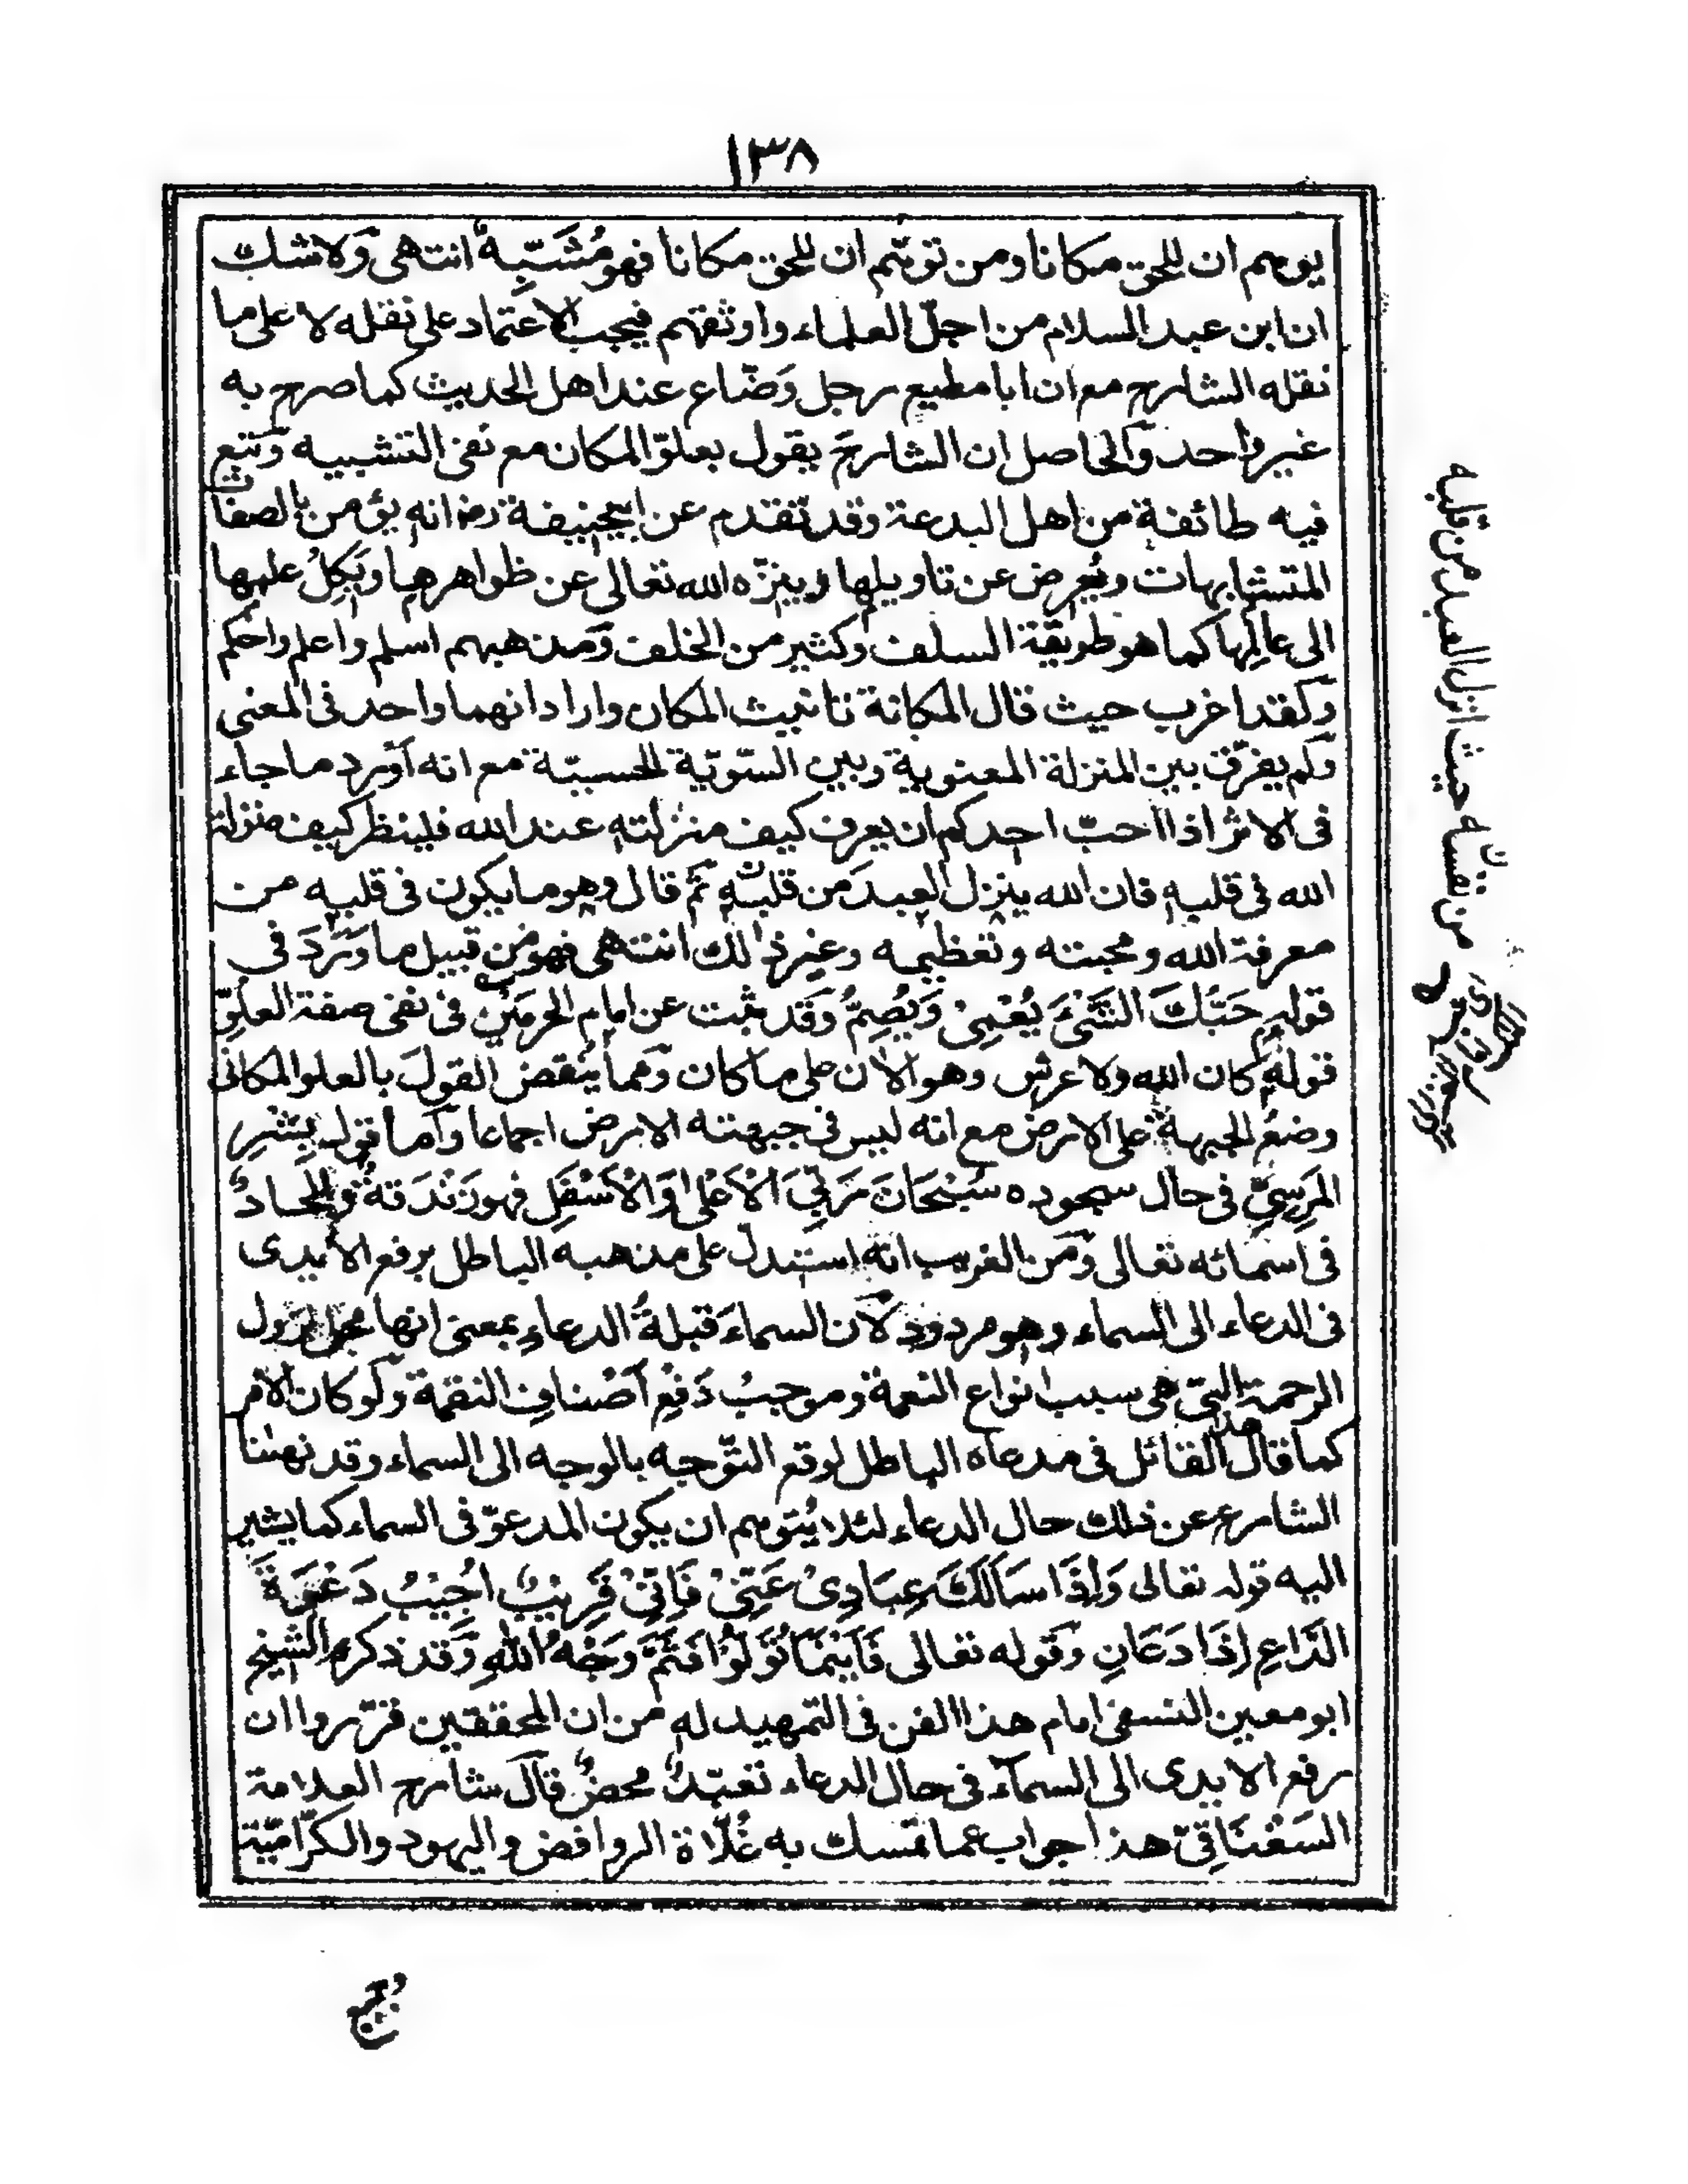 ١٣٨
يوهم ان للحق مكانا ومن توهّم ان للحق مكانا فهو مُشَبِّهٌ انتهى وَلا شك
ان ابن عبد السلام من اجلّ العلماء واوثقهم فيجب الاعتماد على نقله لا على ما
نقله الشارح مع ان ابا مطيع رجل وَضّاع عند اهل الحديث كما صرح به
غير واحد وَالحاصل ان الشارحَ يقول بعلوّ المكان مع نفى التشبيه وَتبع
فيه طائفة من اهل البدعة وقد تقدم عن ابيحنيفة رض انه يؤمن بالصفات
المتشابهات ويُعرض عن تاويلها وينزّه الله تعالى عن ظواهرها ويَكِلُ علمها
الى عالِمِها كما هو طريقة السلف وكثير من الخلف وَمذهبهم اسلم واعلم واحكم
وَلقد اغرب حيث قال المكانة تانيث المكان واراد انهما واحد فى المعنى
وَلم يفرّق بين المنزلة المعنوية وبين السّويّة الحسيّة مع انه اَورد ما جاء
فى الاثر اذا احبّ احدكم ان يعرف كيف منزلته عند الله فلينظر كيف منزلة
الله فى قلبه فان الله ينزل العبدَ من قلبه ثمّ قال وهو ما يكون فى قلبه من
معرفة الله ومحبته وتعظيمه وغير ذلك انتهى فهو من قبيل ما وَرَدَ فى
قوله حَبُّكَ الشَّىْءَ يُعْمِىْ وَيُصِمُّ وَقد ثبت عن امام الحرمَيْنِ فى نفى صفة العلوّ
قوله كان الله ولا عرش وهو الان على ما كان وَمما يُنقض القولَ بالعلو المكانى
وضعُ الجبهة على الارض مع انه ليس فى جبهته الارض اجماعا وَاما قول بِشْرِ
المَرِسِيّ فى حال سجوده سُبْحَانَ رَبِّيَ الْاَعْلٰى وَالْاَسْفَلِ فهو زَنْدَقةٌ وَالحادٌ
فى اسمائه تعالى وَمن الغريب انه استدل على مذهبه الباطل برفع الايدى
فى الدعاء الى السماء وهو مردود لاَن السماءَ قبلةُ الدعاءِ بمعنى انها محل نزول
الرحمة التى هى سبب انواع النعمة وموجبُ دَفْعِ اَصْنافِ النقمة وَلو كان الامر
كما قال هذا القائل فى مدعاه الباطل لوقع التّوجه بالوجه الى السماء وقد نهٰنا
الشارع عن ذلك حال الدعاء لئلا يُتوهم ان يكون المدعوّ فى السماء كما يشير
اليه قوله تعالى وَاِذَا سَاَلَكَ عِبَادِىْ عَنِّىْ فَاِنِّىْ قَرِيْبٌ اُجِيْبُ دَعْوَةَ
الدَّاعِ اِذَا دَعَانِ وَقوله تعالى فَاَيْنَمَا تُوَلُّوْا فَثَمَّ وَجْهُ اللهِ وَقد ذكره الشيخ
ابو معين النسفى امام هذا الفن فى التمهيد له من ان المحققين قرّروا ان
رفع الايدى الى السمآء فى حال الدعاء تعبّدٌ محضٌ قال شارح العلامة
السَغْنَاقِىّ هذا جواب عما تمسك به غُلَاة الروافض واليهود والكرّاميّة
من نفسه حيث انزل العبد من قلبه